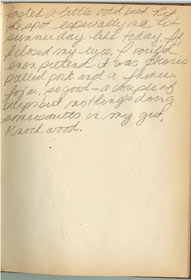 tasted a little odd but hit
the spot, especially on a hot
summer day like today. If
I closed my eyes, I could
even pretend it was Thai
pulled pork and a
far, so good - a couple of
burps but nothing's doing
somersaults in my gut.
Knock wood.